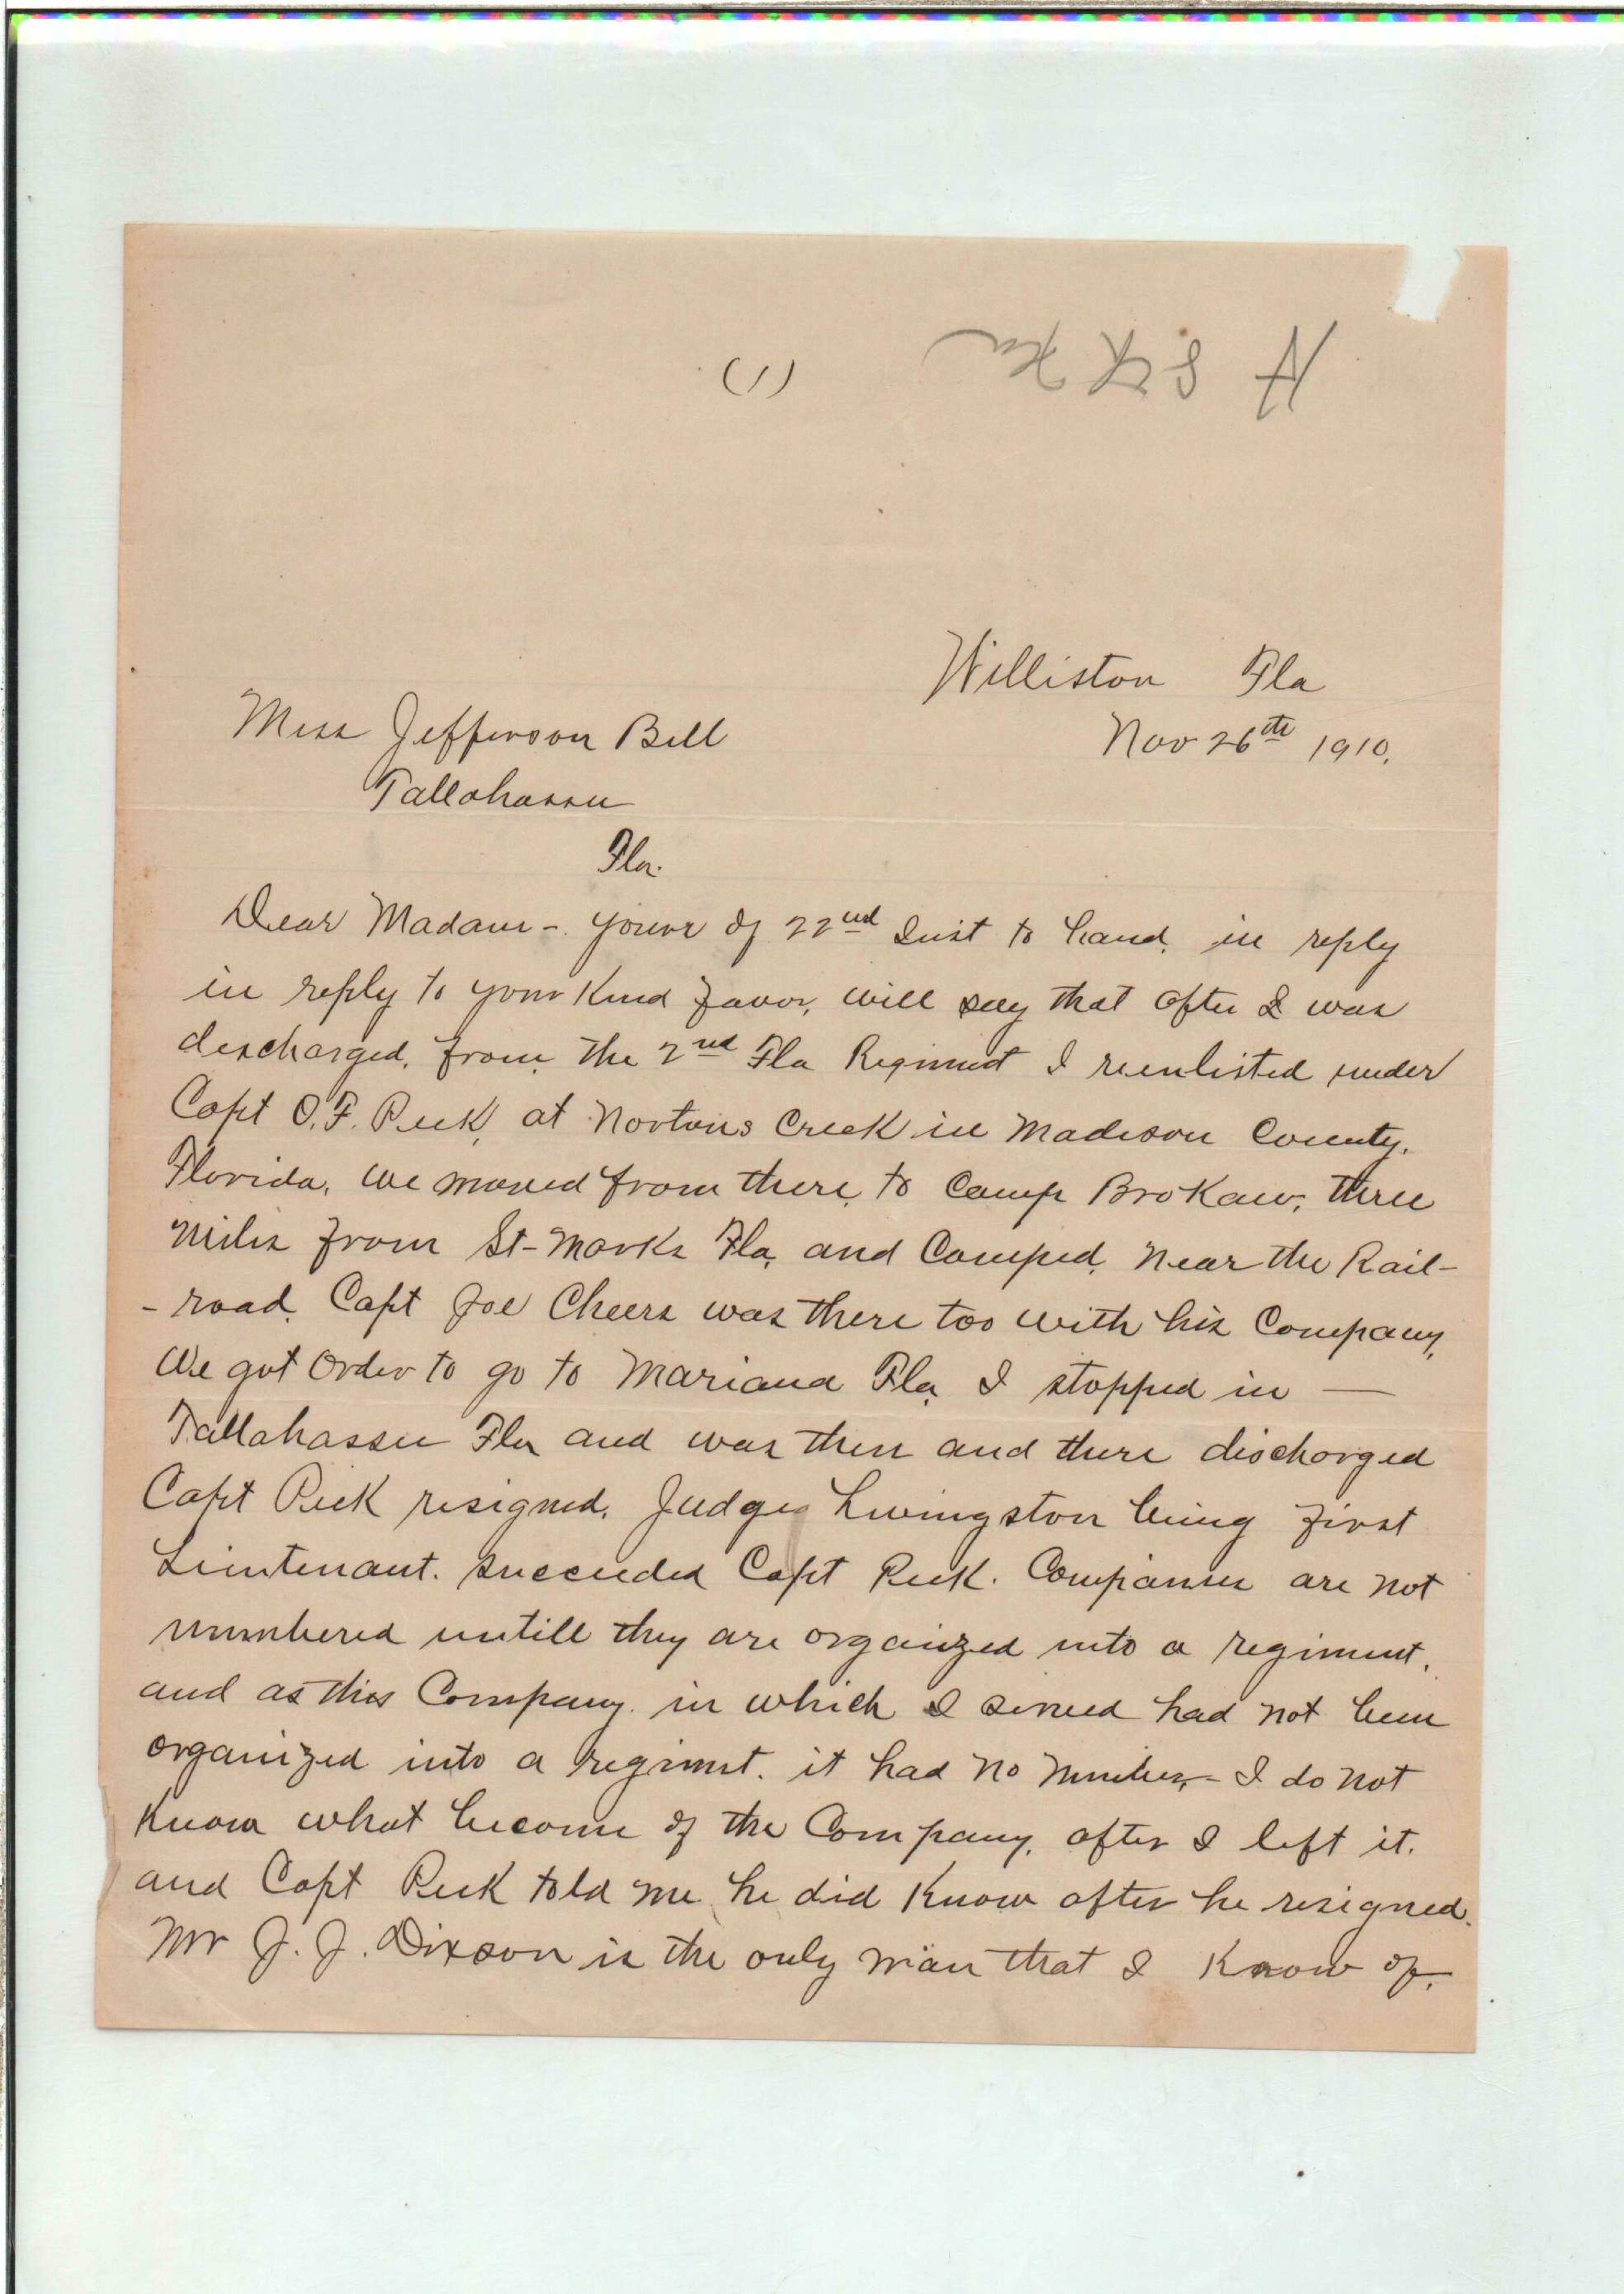 (1)
Williston Fla
Nov 26th 1910.
Miss Jefferson Bell
Tallahassee
Fla.
Dear Madam -. Yours of 22nd Inst to hand. in reply
in reply to your Kind favor, will say that after I was
discharged, from the 2nd Fla Regiment I reenlisted under
Capt O. F. Peek, at Nortons Creek in Madison County.
Florida, we moved from there, to Camp BroKaw, three
miles from St-Marks Fla, and Camped, near the Rail-
-road. Capt Joe Cheers was there too with his Company,
We got Order to go to Mariana Fla, I stopped in —
Tallahassee Fla and was then and there discharged
Capt Peek resigned, Judge Livingston being first
Lieutenant. succeeded Capt Peek. Companies are not
numbered untill they are organized into a regiment,
and as this Company. in which I served had not been
organized into a regiment. it had no number,- I do not
Know what become of the Company, after I left it.
and Capt Peek told me he did Know after he resigned.
Mr J. J. Dixson is the only man that I Know of,